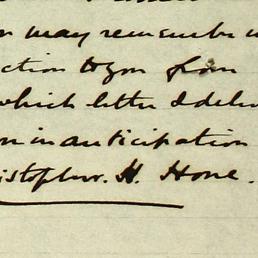 may remember
ction to you from
which letter I deliv
on in anticipation
istopher. H. Hone.